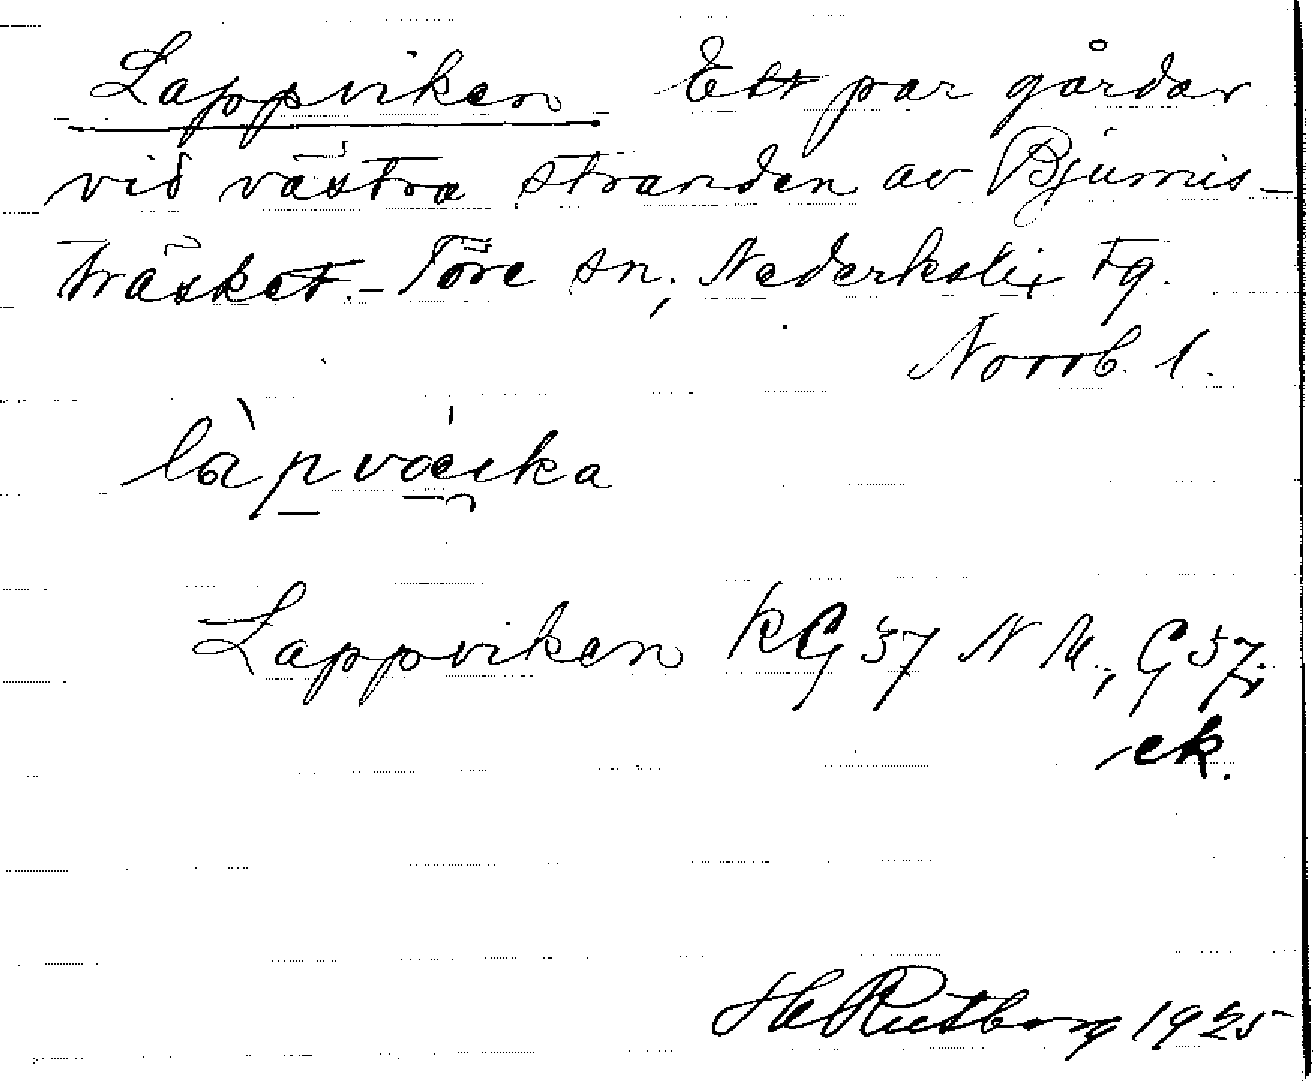 Lappviken Ett par gårdar
vid västra stranden av Bjumis-
träsket. - Töre sn, Nederkalix tg.
Norrb. l.
Lappviken KG 57 N M., G 57;
ek.
H Rutberg 1925